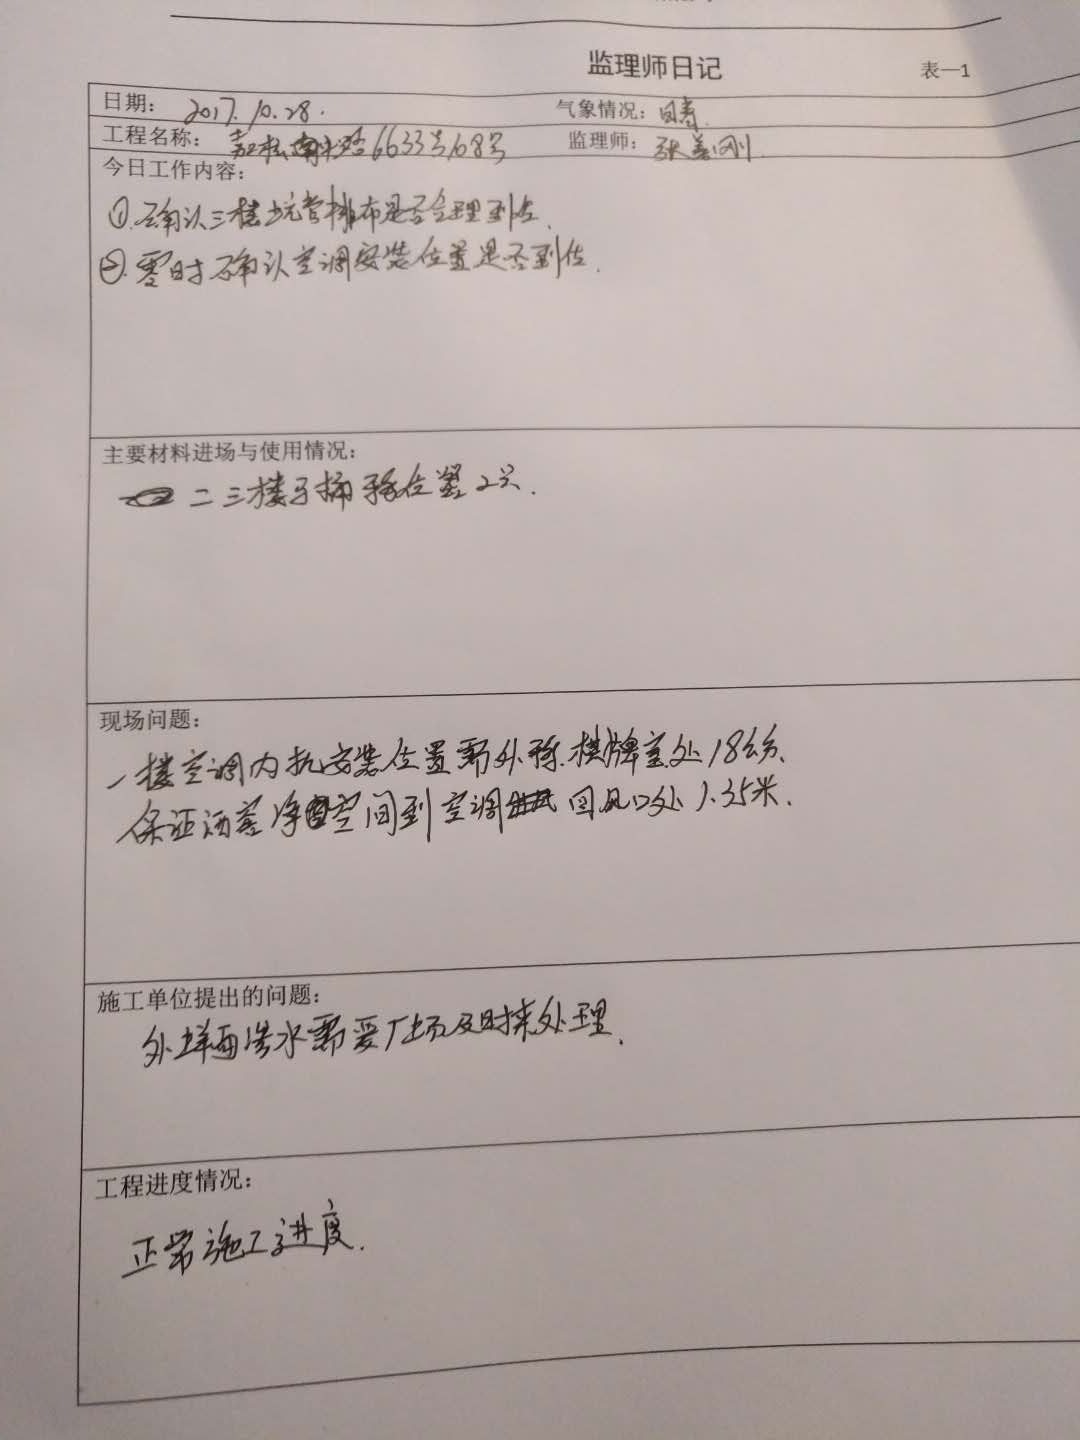 监理师日记
表一1
日期： 2017.10.28.
气象情况：
工程名称： 嘉松南路6633弄68号
监理师： 张 刚
今日工作内容：
①.确认三楼坑管排布是否合理到位.
②.零时确认空调安装位置是否到位.
主要材料进场与使用情况：
二三楼马桶移位器2只.
现场问题：
一楼空调内机安装位置需外移.棋牌室处18公分.
保证酒窖净空间到空调 回风口处1.35米.
施工单位提出的问题：
外墙面渗水需要 及时来处理.
工程进度情况：
正常施工进度.